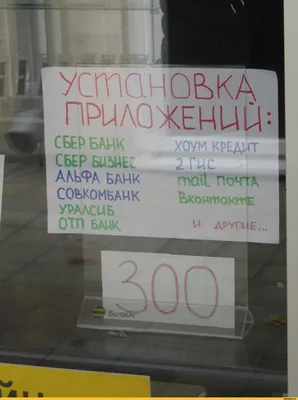 УСТАНОВКА
ПРИЛОЖЕНИЙ:
СБЕР БАНК
СБЕР БИЗНЕС
АЛЬФА БАНК
СОВКОМБАНК
УРАЛСИБ
ОТП БАНК
ХОУМ КРЕДИТ
2 ГИС
mail ПОЧТА
Вконтакте
И ДРУГИЕ...
300
Билайн